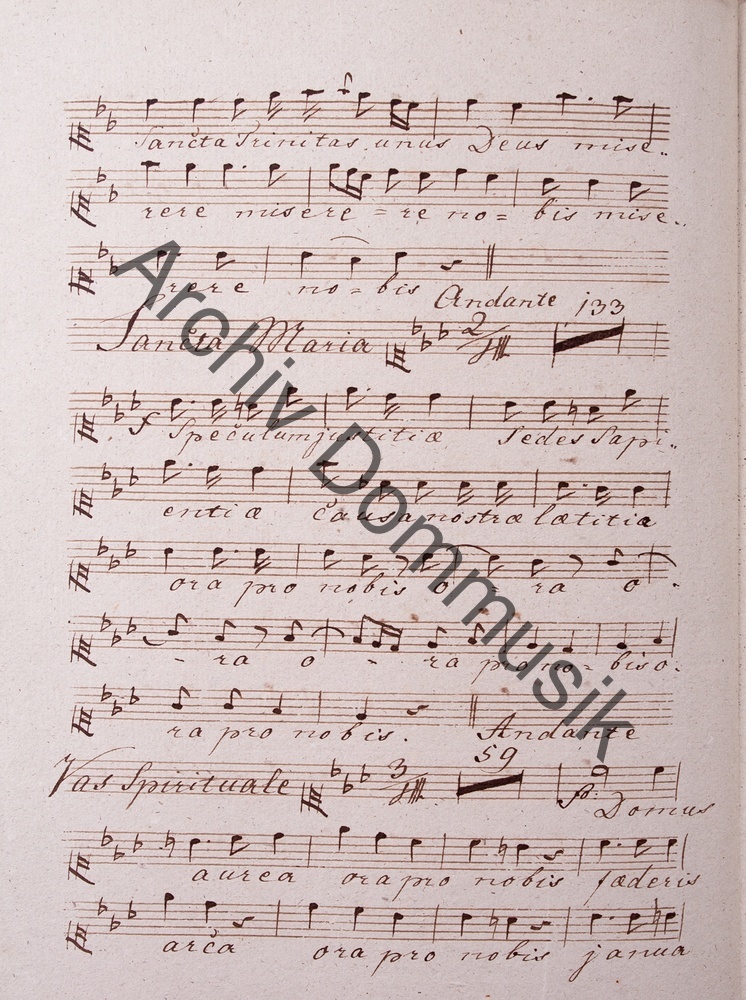 Sancta Trinitas unus Deus mise..
rere misere = re no = bis mise..
rere no = bis Andante 133
Sancta Maria 2
f Speculum justitiæ Sedes Sapi..
entiæ causa nostræ lætitiæ
ora pro nobis o = ra o.
- ra o - ra pro no = bis o.
ra pro nobis. Andante
59
Vas Spirituale 3 p: Domus
aurea ora pro nobis fæderis
arca ora pro nobis janua
Archiv Dommusik